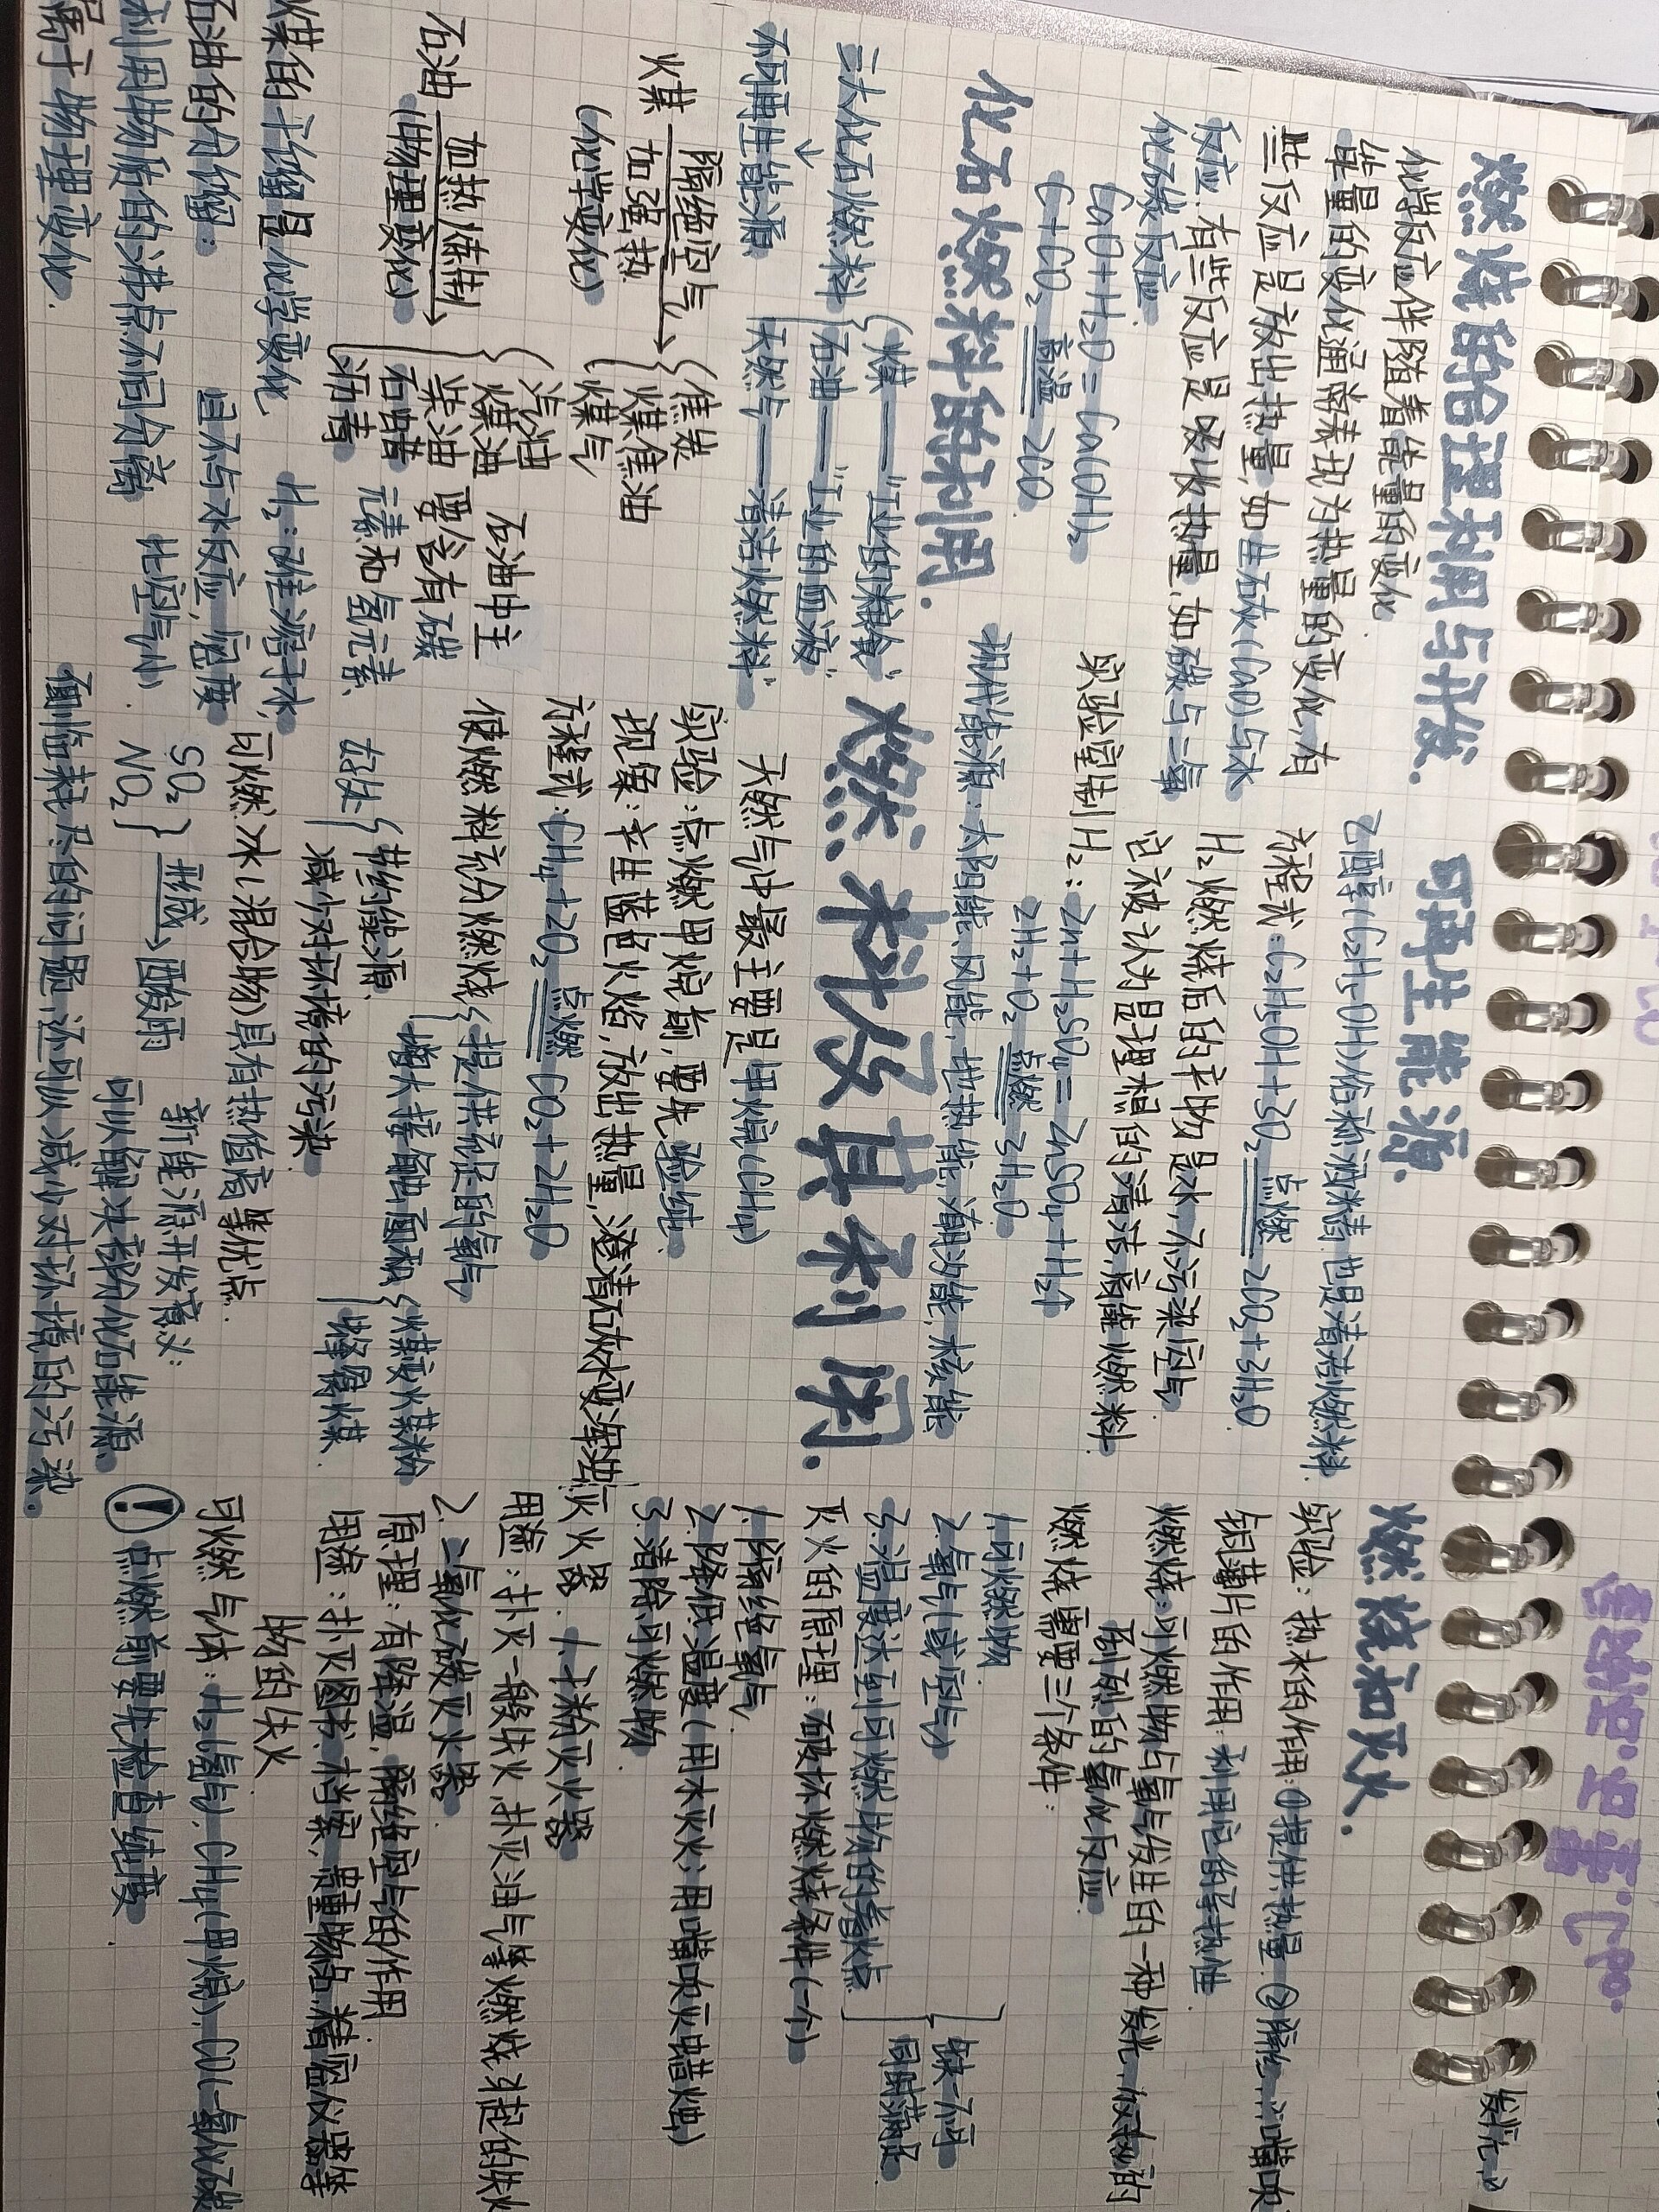 燃烧的合理利用与开发.
化学反应伴随着能量的变化
能量的变化通常表现为热量的变化,有
些反应是放出热量,如生石灰(CaO)与水
反应.有些反应是吸收热量,如碳与二氧
化碳反应
CaO+H₂O=Ca(OH)₂
C+CO₂ 高温 2CO
化石燃料的利用.
三大化石燃料
煤——“工业的粮食”
石油——“工业的血液”
天然气——“清洁燃料”
↓
不可再生能源
煤 隔绝空气 加强热 →
(化学变化)
焦炭
煤焦油
煤气
石油 加热炼制 →
(物理变化)
汽油
煤油
柴油
石蜡
沥青
石油中主
要含有碳
元素和氢元素
煤的干馏是化学变化
石油的分馏:
利用物质的沸点不同分离
属于物理变化.
H₂:难溶于水,
且不与水反应,密度
比空气小
可再生能源.
乙醇(C₂H₅OH)俗称酒精.也是清洁燃料.
方程式:C₂H₅OH+3O₂ 点燃 2CO₂+3H₂O
H₂燃烧后的产物是水,不污染空气
它被认为是理想的清洁,高能燃料
实验室制H₂:Zn+H₂SO₄=ZnSO₄+H₂↑
2H₂+O₂ 点燃 2H₂O
现代能源:太阳能、风能,地热能,潮汐能,核能
燃料及其利用.
天然气中最主要是甲烷(CH₄)
实验:点燃甲烷前,要先验纯.
现象:产生蓝色火焰,放出热量,澄清石灰水变浑浊
方程式:CH₄+2O₂ 点燃 CO₂+2H₂O
使燃料充分燃烧
提供充足的氧气
增大接触面积
煤变煤粉
蜂窝煤
好处
节约能源.
减少对环境的污染
可燃冰(混合物)具有热值高等优点.
SO₂
NO₂ 形成→酸雨
新能源开发意义:
可以解决部分化石能源
面临耗尽的问题,还可以减小对环境的污染.
燃烧和灭火.
燃烧:可燃物与氧气发生的一种发光,放热的
剧烈的氧化反应
燃烧需要三个条件:
1.可燃物
2.氧气(或空气)
3.温度达到可燃物的着火点
缺一不可
同时满足
灭火的原理:破坏燃烧条件(一个)
1.隔绝氧气
2.降低温度(用水灭火;用嘴吹灭蜡烛)
3.清除可燃物.
灭火器.1.干粉灭火器
用途:扑灭一般失火,扑灭油气等燃烧引起的失火
2.二氧化碳灭火器
原理:有降温,隔绝空气的作用
用途:扑灭图书,档案,贵重物品,精密仪器等
物的失火
可燃气体:H₂(氢气).CH₄(甲烷),CO(一氧化碳
!点燃前要先检查纯度